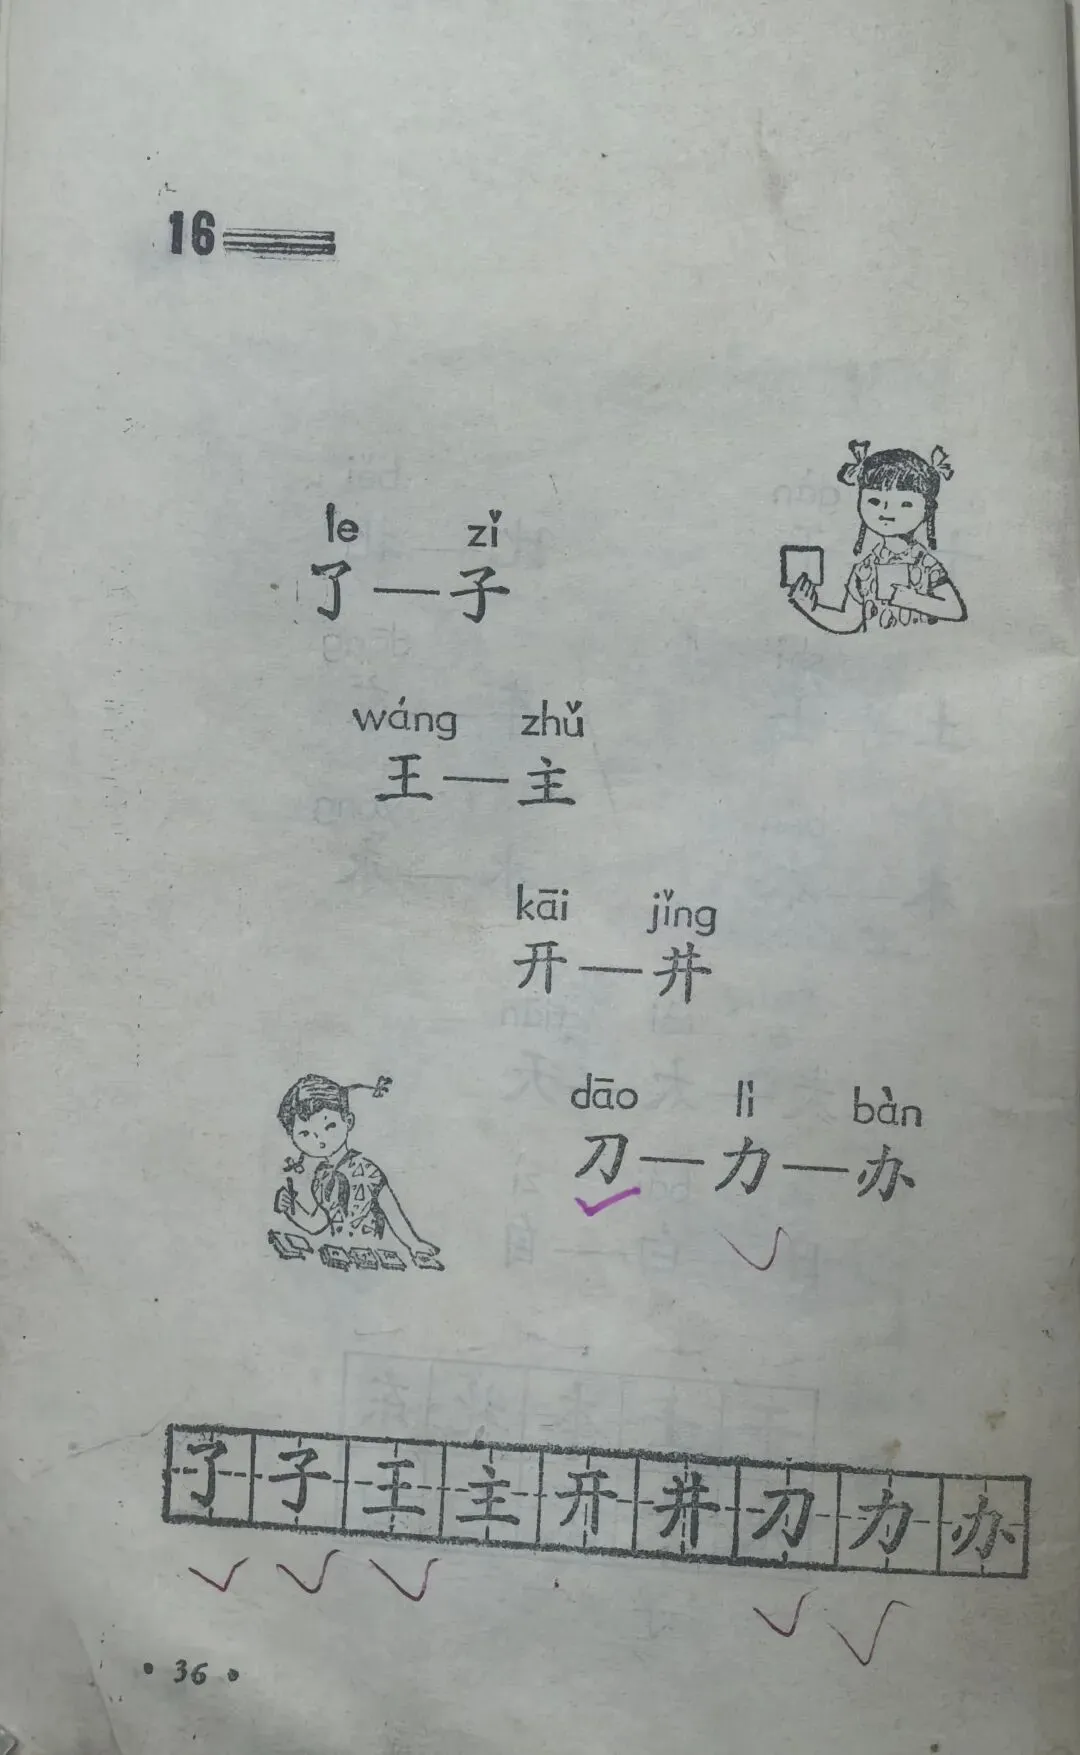 16
le zǐ
了—子
wáng zhǔ
王—主
kāi jǐng
开—井
dāo lì bàn
刀—力—办
了子王主开井刀力办
·36·